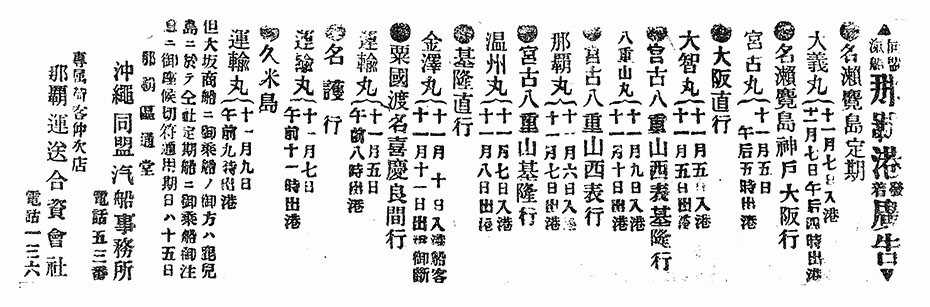 ▲同盟汽船那覇港発着廣告▼
●名瀬鹿児島定期
大義丸 十一月七日入港 十一月七日午后四時出港
●名瀬鹿児島神戸大阪行
宮古丸 十一月五日 午后五時出港
●大阪直行
大智丸 十一月五日入港 十一月七日出港
●宮古八重山西表基隆行
八重山丸 十一月九日入港 十一月十日出港
●宮古八重山西表行
那覇丸 十一月六日入港 十一月七日出港
●宮古八重山基隆行
温州丸 十一月七日入港 十一月八日出港
●基隆直行
金澤丸 十一月十日入港船客 十一月十一日出港御断
●粟國渡名喜慶良間行
運輸丸 十一月五日 午前八時出港
●名護行
運輸丸 十一月七日 午前十一時出港
●久米島
運輸丸 十一月九日 午前九時出港
但大坂商船ニ御乗船ノ御方ハ鹿児
島ニ於テ仝社定期船ニ御乗船御注
意ニ御座候切符通用期日ハ十五日
那覇區通堂
沖繩同盟汽船事務所
電話五三番
専属荷客仲次店
那覇運送合資會社
電話一三六